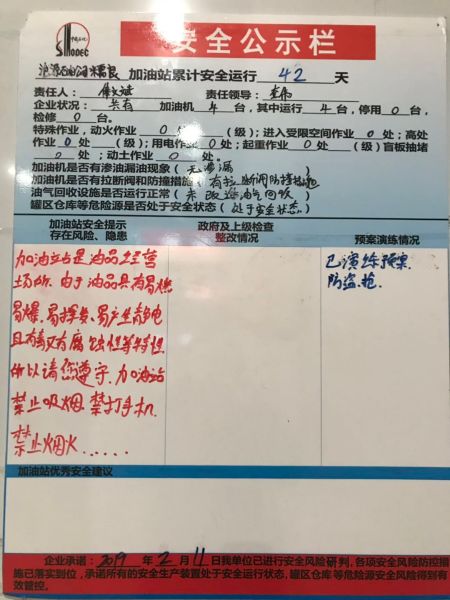 中国石化
SINOPEC
安全公示栏
加油站累计安全运行 42 天
责任人： 责任领导：
企业状况： 共有 加油机 4 台，其中运行 4 台，停用 0 台，
检修 0 台。
特殊作业，动火作业 0 处 （级）；进入受限空间作业 0 处；高处
作业 0 处 （级）；用电作业 0 处；起重作业 0 处（级）盲板抽堵
0 处；动土作业 0 处。
加油机是否有渗油漏油现象（ 无渗漏 ）
加油机是否有拉断阀和防撞措施（有拉断阀防撞措施
油气回收设施是否运行正常（ 未改造油气回收 ）
罐区仓库等危险源是否处于安全状态（ 处于安全状态 ）
加油站安全提示
存在风险、隐患
政府及上级检查
整改情况
预案演练情况
加油站是油品经营
场所.由于油品具有易燃
易爆、易挥发、易产生静电
且有毒又有腐蚀性等特性
所以请您遵守.加油站
禁止吸烟.禁打手机.
禁止烟火......
已演练预案.
防盗.抢.
加油站优秀安全建议
企业承诺：2019 年 2 月 11 日我单位已进行安全风险研判，各项安全风险防控措
施已落实到位，承诺所有的安全生产装置处于安全运行状态，罐区仓库等危险源安全风险得到有
效管控。